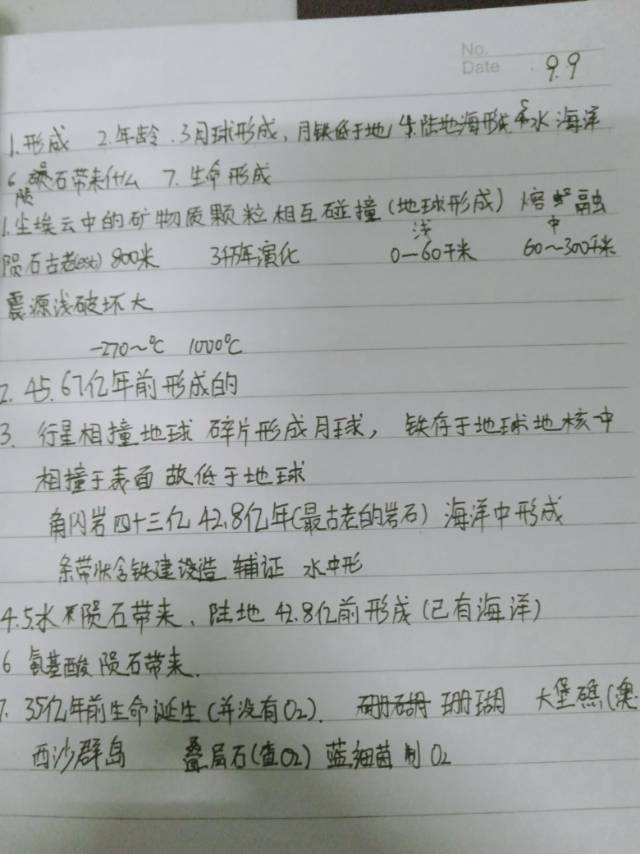 No.
Date 9.9
1.形成 2.年龄 3月球形成,月铁低于地 4.陆地海形成 5水 海洋
6 陨石带来什么 7.生命形成
1.尘埃云中的矿物质颗粒相互碰撞(地球形成) 熔 融
浅 中
陨石古老(est) 800米 3千万年演化 0—60千米 60~300千米
震源浅破坏大
-270~℃ 1000℃
2. 45.67亿年前形成的
3. 行星相撞地球 碎片形成月球, 铁存于地球地核中
相撞于表面 故低于地球
角闪岩 四十三亿 42.8亿年(最古老的岩石) 海洋中形成
条带状含铁建造 辅证 水中形
4.5水 陨石带来、陆地 42.8亿前形成(已有海洋)
6 氨基酸 陨石带来.
7. 35亿年前生命诞生(并没有O2). 珊瑚 大堡礁(澳
西沙群岛 叠层石(查O2) 蓝细菌 制O2